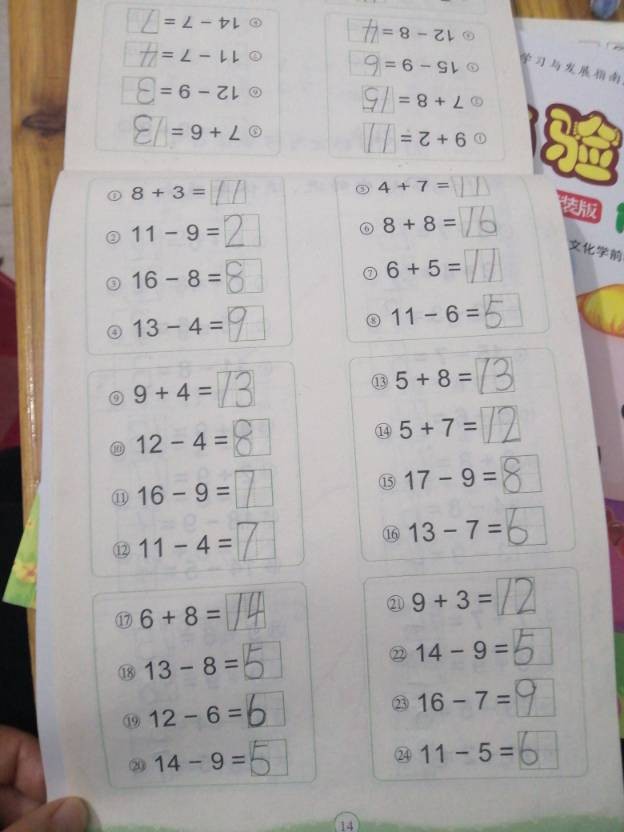 ① 9 + 2 = 11
② 7 + 8 = 15
③ 15 − 9 = 6
④ 12 − 8 = 4
⑤ 7 + 6 = 13
⑥ 12 − 9 = 3
⑦ 11 − 7 = 4
⑧ 14 − 7 = 7
① 8 + 3 = 11
② 11 − 9 = 2
③ 16 − 8 = 8
④ 13 − 4 = 9
⑤ 4 + 7 = 11
⑥ 8 + 8 = 16
⑦ 6 + 5 = 11
⑧ 11 − 6 = 5
⑨ 9 + 4 = 13
⑩ 12 − 4 = 8
⑪ 16 − 9 = 7
⑫ 11 − 4 = 7
⑬ 5 + 8 = 13
⑭ 5 + 7 = 12
⑮ 17 − 9 = 8
⑯ 13 − 7 = 6
⑰ 6 + 8 = 14
⑱ 13 − 8 = 5
⑲ 12 − 6 = 6
⑳ 14 − 9 = 5
㉑ 9 + 3 = 12
㉒ 14 − 9 = 5
㉓ 16 − 7 = 9
㉔ 11 − 5 = 6
14
学习与发展指南
验
装版
文化学前